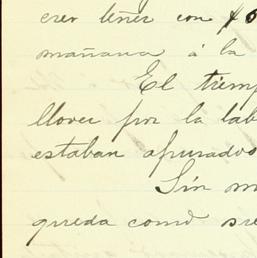 creo tener con
mañana á la
El tiemp
llover por la lab
estaban apurados
Sin m
queda como sie